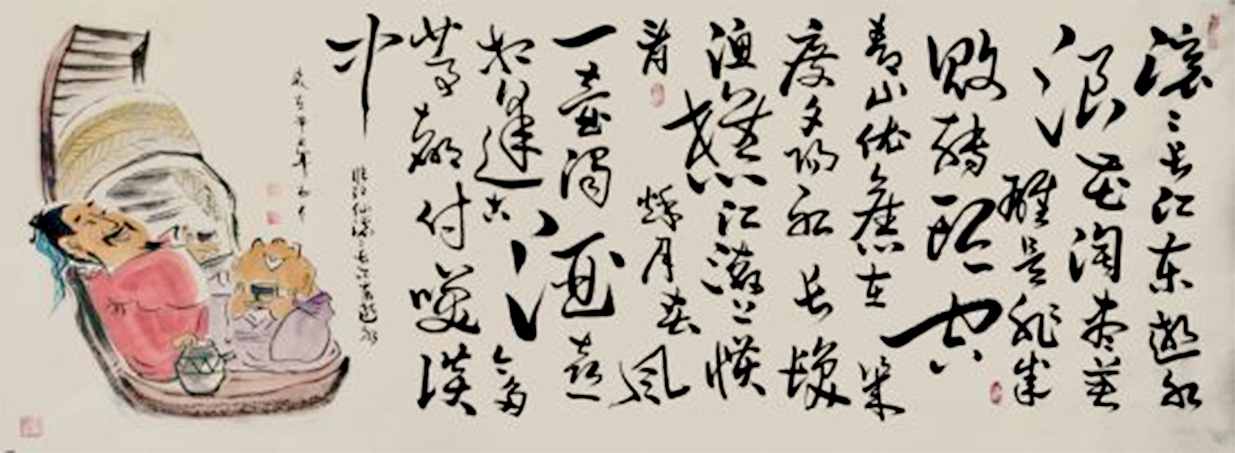 滚〻长江东逝水
浪花淘尽英
雄是非成
败转头空
青山依旧在几
度夕阳红长髮
渔樵江渚上惯
看秋月春风
一壶浊酒喜
相逢古今多
少事都付笑谈
中
临江仙滚〻长江东逝水